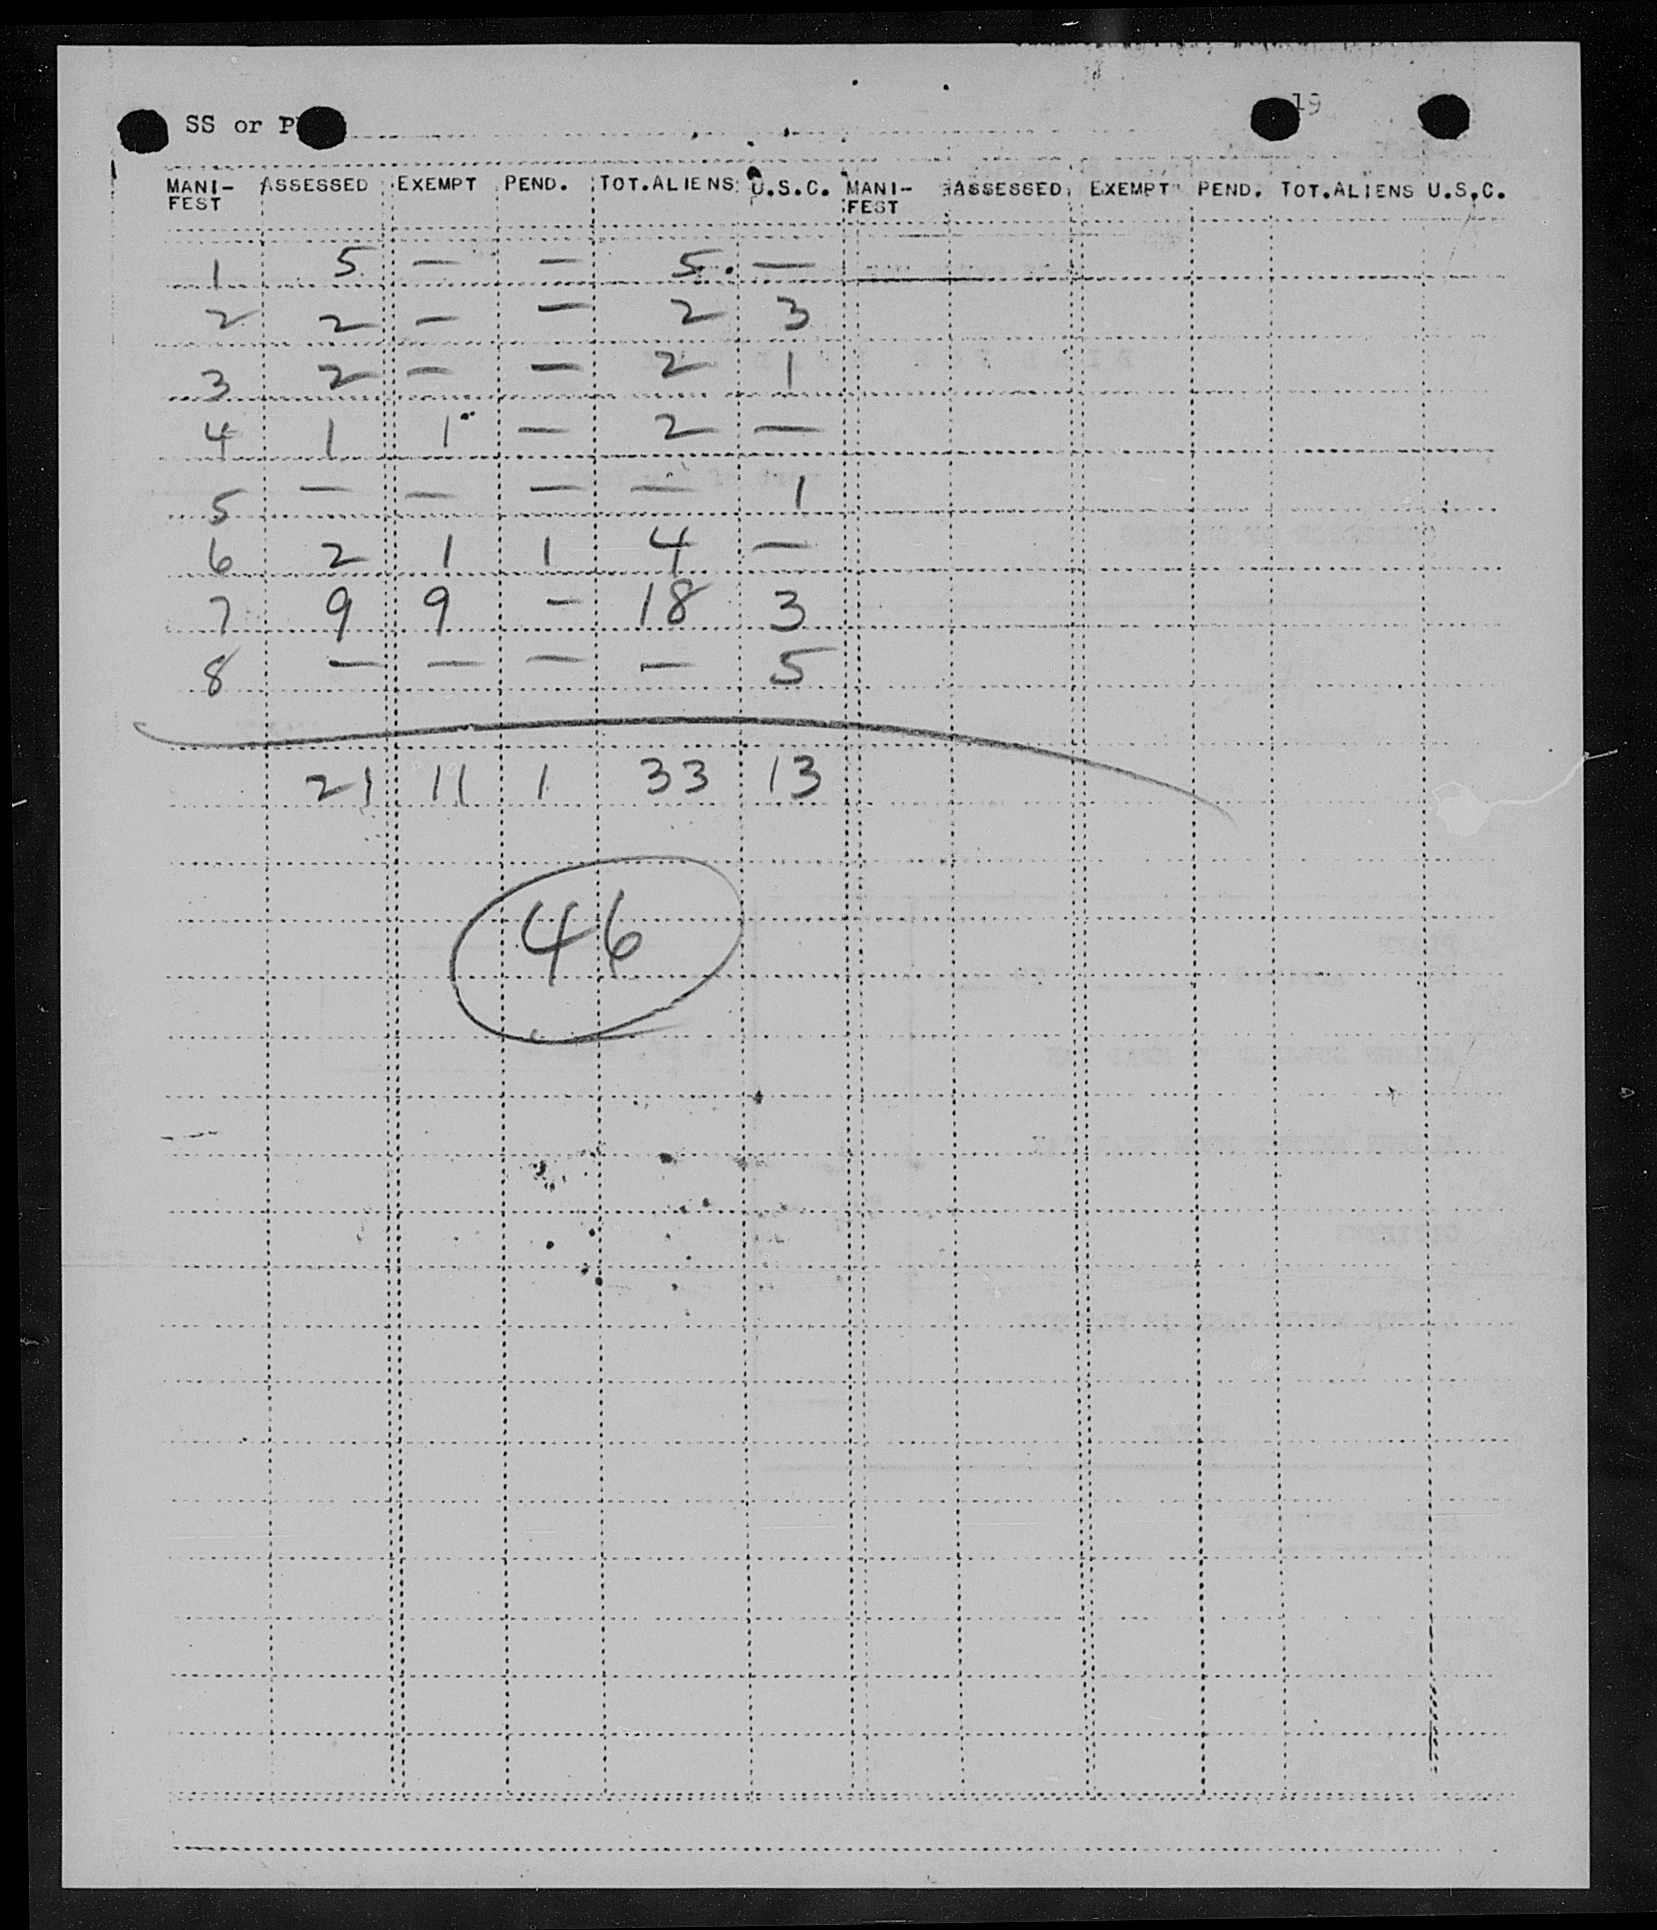 19
SS or
MANI-FEST ASSESSED EXEMPT PEND. TOT.ALIENS U.S.C. MANI-FEST ASSESSED EXEMPT PEND. TOT.ALIENS U.S.C.
1 5 — — 5 —
2 2 — — 2 3
3 2 — — 2 1
4 1 1 — 2 —
5 — — — — 1
6 2 1 1 4 —
7 9 9 — 18 3
8 — — — — 5
21 11 1 33 13
46